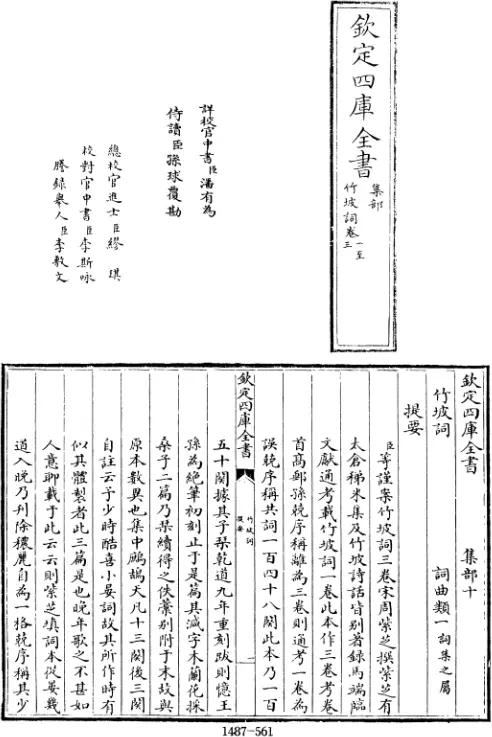 欽定四庫全書
集部
竹坡詞卷一至三
詳校官中書臣潘有為
侍讀臣孫球覆勘
總校官進士臣繆琪
校對官中書臣李斯咏
謄錄舉人臣李敷文
欽定四庫全書　集部十
竹坡詞　詞曲類一詞集之屬
提要
臣等謹案竹坡詞三卷宋周紫芝撰紫芝有
太倉稊米集及竹坡詩話皆别著錄馬端臨
文獻通考載竹坡詞一卷此本作三卷考卷
首髙郵孫兢序稱離為三卷則通考一卷為
誤兢序稱共詞一百四十八闋此本乃一百
欽定四庫全書
竹坡詞
提要
五十闋據其子栞乾道九年重刻跋則憶王
孫為絶筆初刻止于是篇其減字木蘭花採
桑子二篇乃栞續得之佚藁别附于末故與
原本數異也集中鷓鴣天凡十三闋後三闋
自註云予少時酷喜小晏詞故其所作時有
似其體製者此三篇是也晚年歌之不甚如
人意聊載于此云云則紫芝填詞本從晏幾
道入晚乃刋除穠麗自為一格兢序稱其少
1487-561